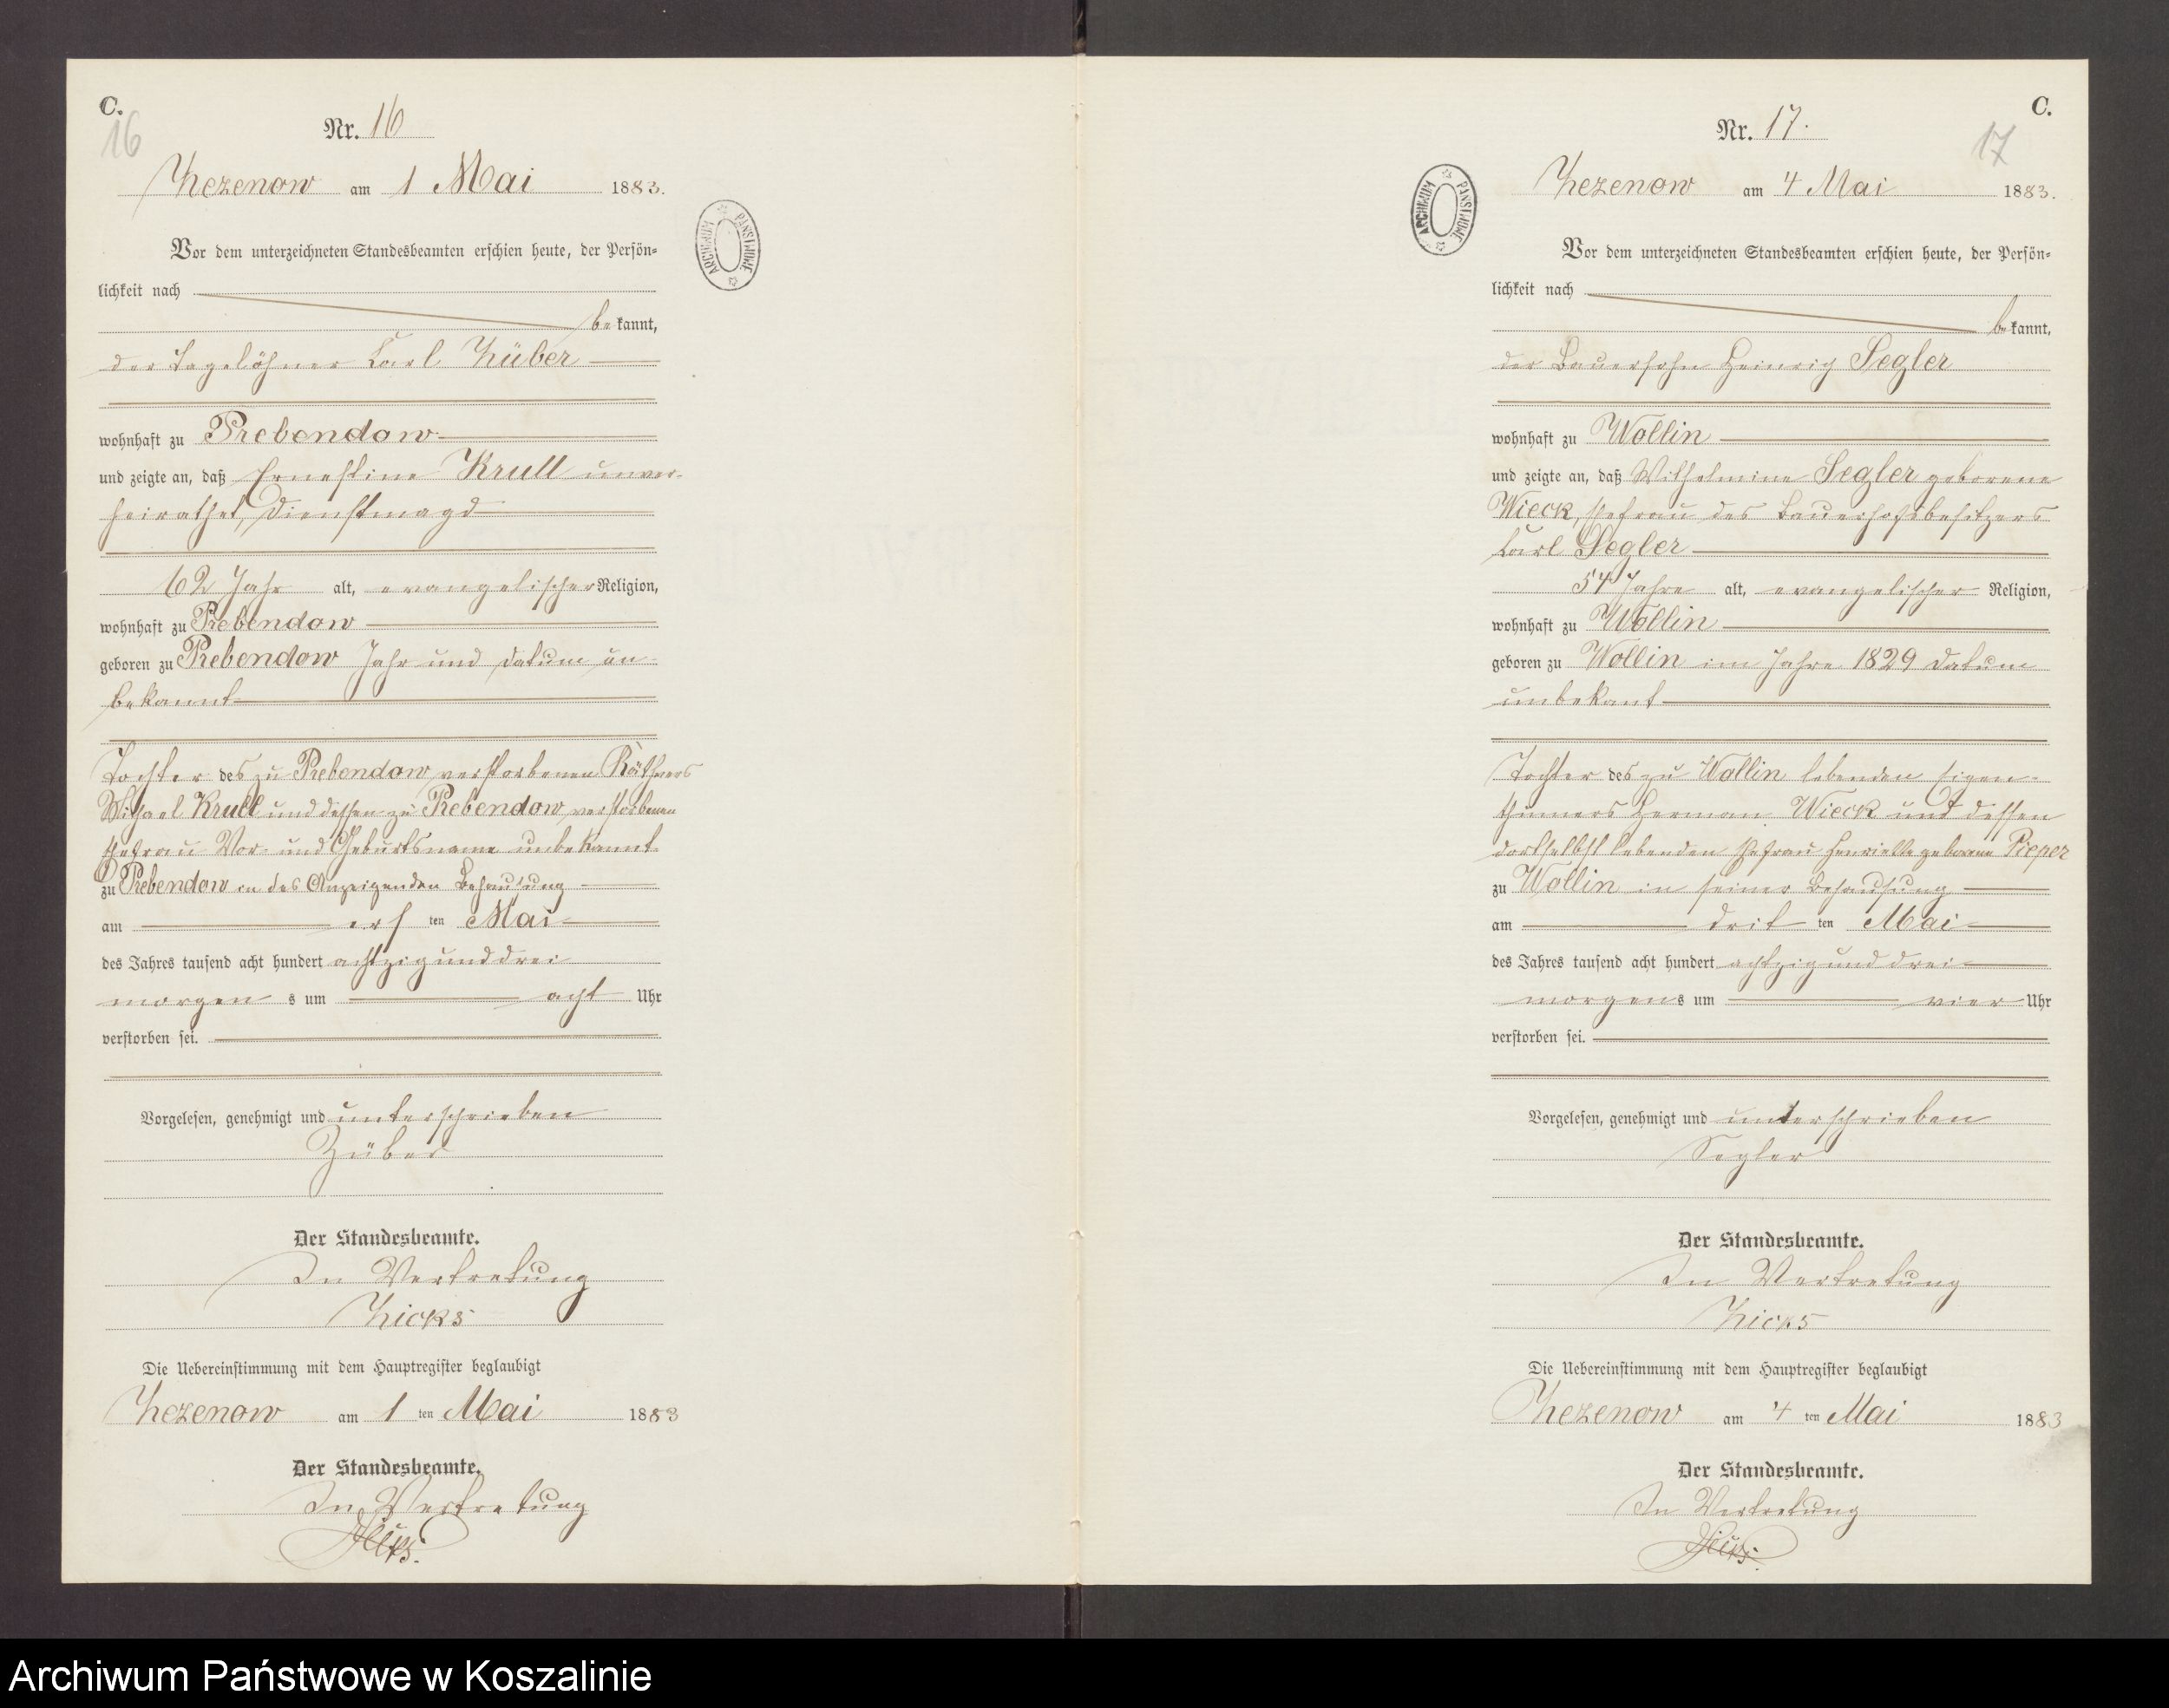 C.
16
Nr. 16
Zezenow am 1 Mai 1883.
ARCHIWUM PAŃSTWOWE
Vor dem unterzeichneten Standesbeamten erschien heute, der Persön-
lichkeit nach
bekannt,
der Tagelöhner Carl Züber
wohnhaft zu Prebendow
und zeigte an, daß Ernestine Krull unver-
heirathet, Dienstmagd
62 Jahr alt, evangelischer Religion,
wohnhaft zu Prebendow
geboren zu Prebendow Jahr und Datum un-
bekannt
Tochter des zu Prebendow verstorbenen Käthners
Michael Krull und dessen zu Prebendow verstorbenen
Ehefrau Vor- und Geburtsname unbekannt
zu Prebendow in des Anzeigenden Behausung
am ersten Mai
des Jahres tausend acht hundert achtzig und drei
morgens um acht Uhr
verstorben sei.
Vorgelesen, genehmigt und unterschrieben
Züber
Der Standesbeamte.
In Vertretung
Zicks
Die Uebereinstimmung mit dem Hauptregister beglaubigt
Zezenow am 1 ten Mai 1883
Der Standesbeamte.
In Vertretung
C.
17
Nr. 17.
Zezenow am 4 Mai 1883.
ARCHIWUM PAŃSTWOWE
Vor dem unterzeichneten Standesbeamten erschien heute, der Persön-
lichkeit nach
bekannt,
der Bauersohn Heinrich Segler
wohnhaft zu Wollin
und zeigte an, daß Wilhelmine Segler geborene
Wieck, Ehefrau des Bauerhofsbesitzers
Carl Segler
54 Jahre alt, evangelischer Religion,
wohnhaft zu Wollin
geboren zu Wollin im Jahre 1829 Datum
unbekant
Tochter des zu Wollin lebenden Eigen-
thümers Herman Wieck und dessen
dortselbst lebenden Ehefrau Henriette geborene Pieper
zu Wollin in seiner Behausung
am dritten Mai
des Jahres tausend acht hundert achtzig und drei
morgens um vier Uhr
verstorben sei.
Vorgelesen, genehmigt und unterschrieben
Segler
Der Standesbeamte.
In Vertretung
Zicks
Die Uebereinstimmung mit dem Hauptregister beglaubigt
Zezenow am 4 ten Mai 1883
Der Standesbeamte.
In Vertretung
Archiwum Państwowe w Koszalinie